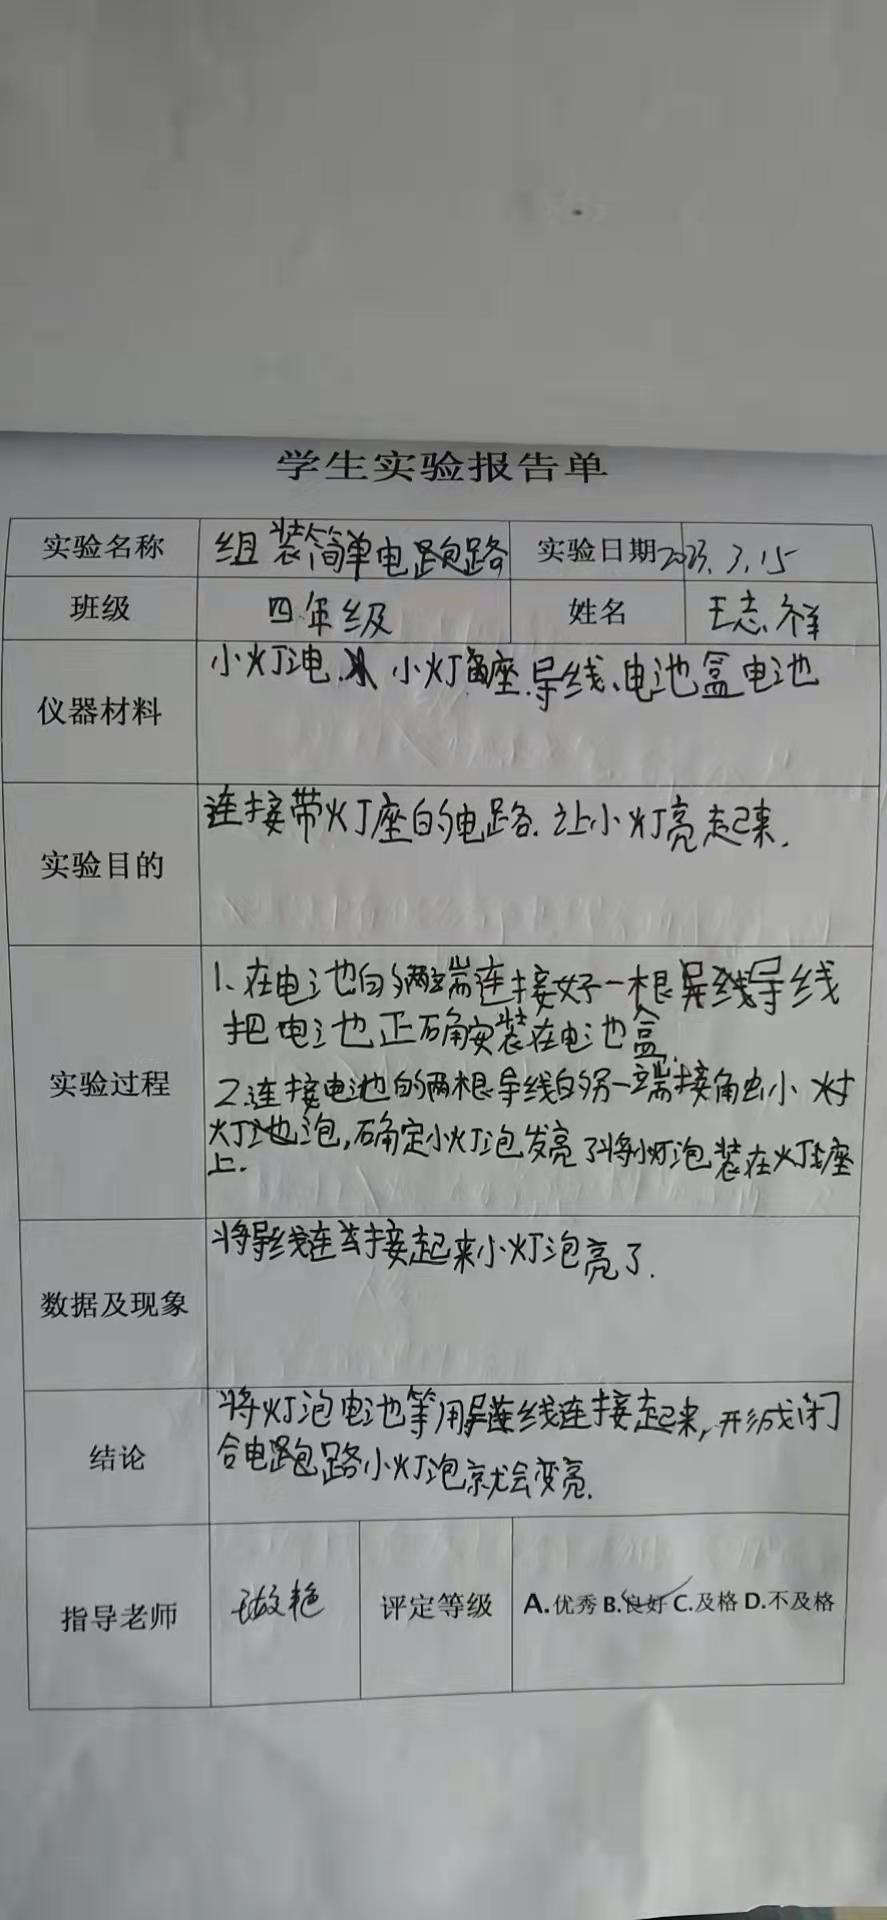 学生实验报告单
实验名称 组装简单电路 实验日期 2023.3.15
班级 四年级 姓名 王志祥
仪器材料 小灯泡、小灯座.导线、电池盒电池
实验目的 连接带灯座的电路.让小灯亮起来.
实验过程
1、在电池的两端连接好一根导线
把电池正确安装在电池盒.
2.连接电池的两根导线的另一端接触小
灯泡,确定小灯泡发亮了将小灯泡装在灯座
上.
数据及现象 将导线连接起来小灯泡亮了.
结论 将灯泡电池等用导线连接起来,形成闭
合电路小灯泡就会变亮.
指导老师 评定等级 A.优秀 B.良好 C.及格 D.不及格